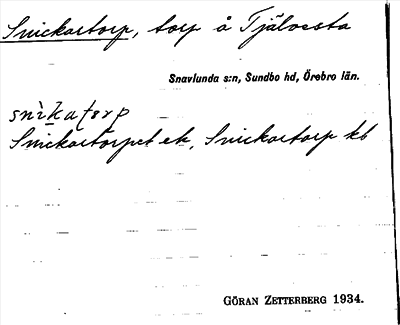 Snickartorp, torp å Tjälvesta
Snavlunda s:n, Sundbo hd, Örebro län.
snìkatǫrp
Snickartorpet ek, Snickartorp kb
GÖRAN ZETTERBERG 1934.